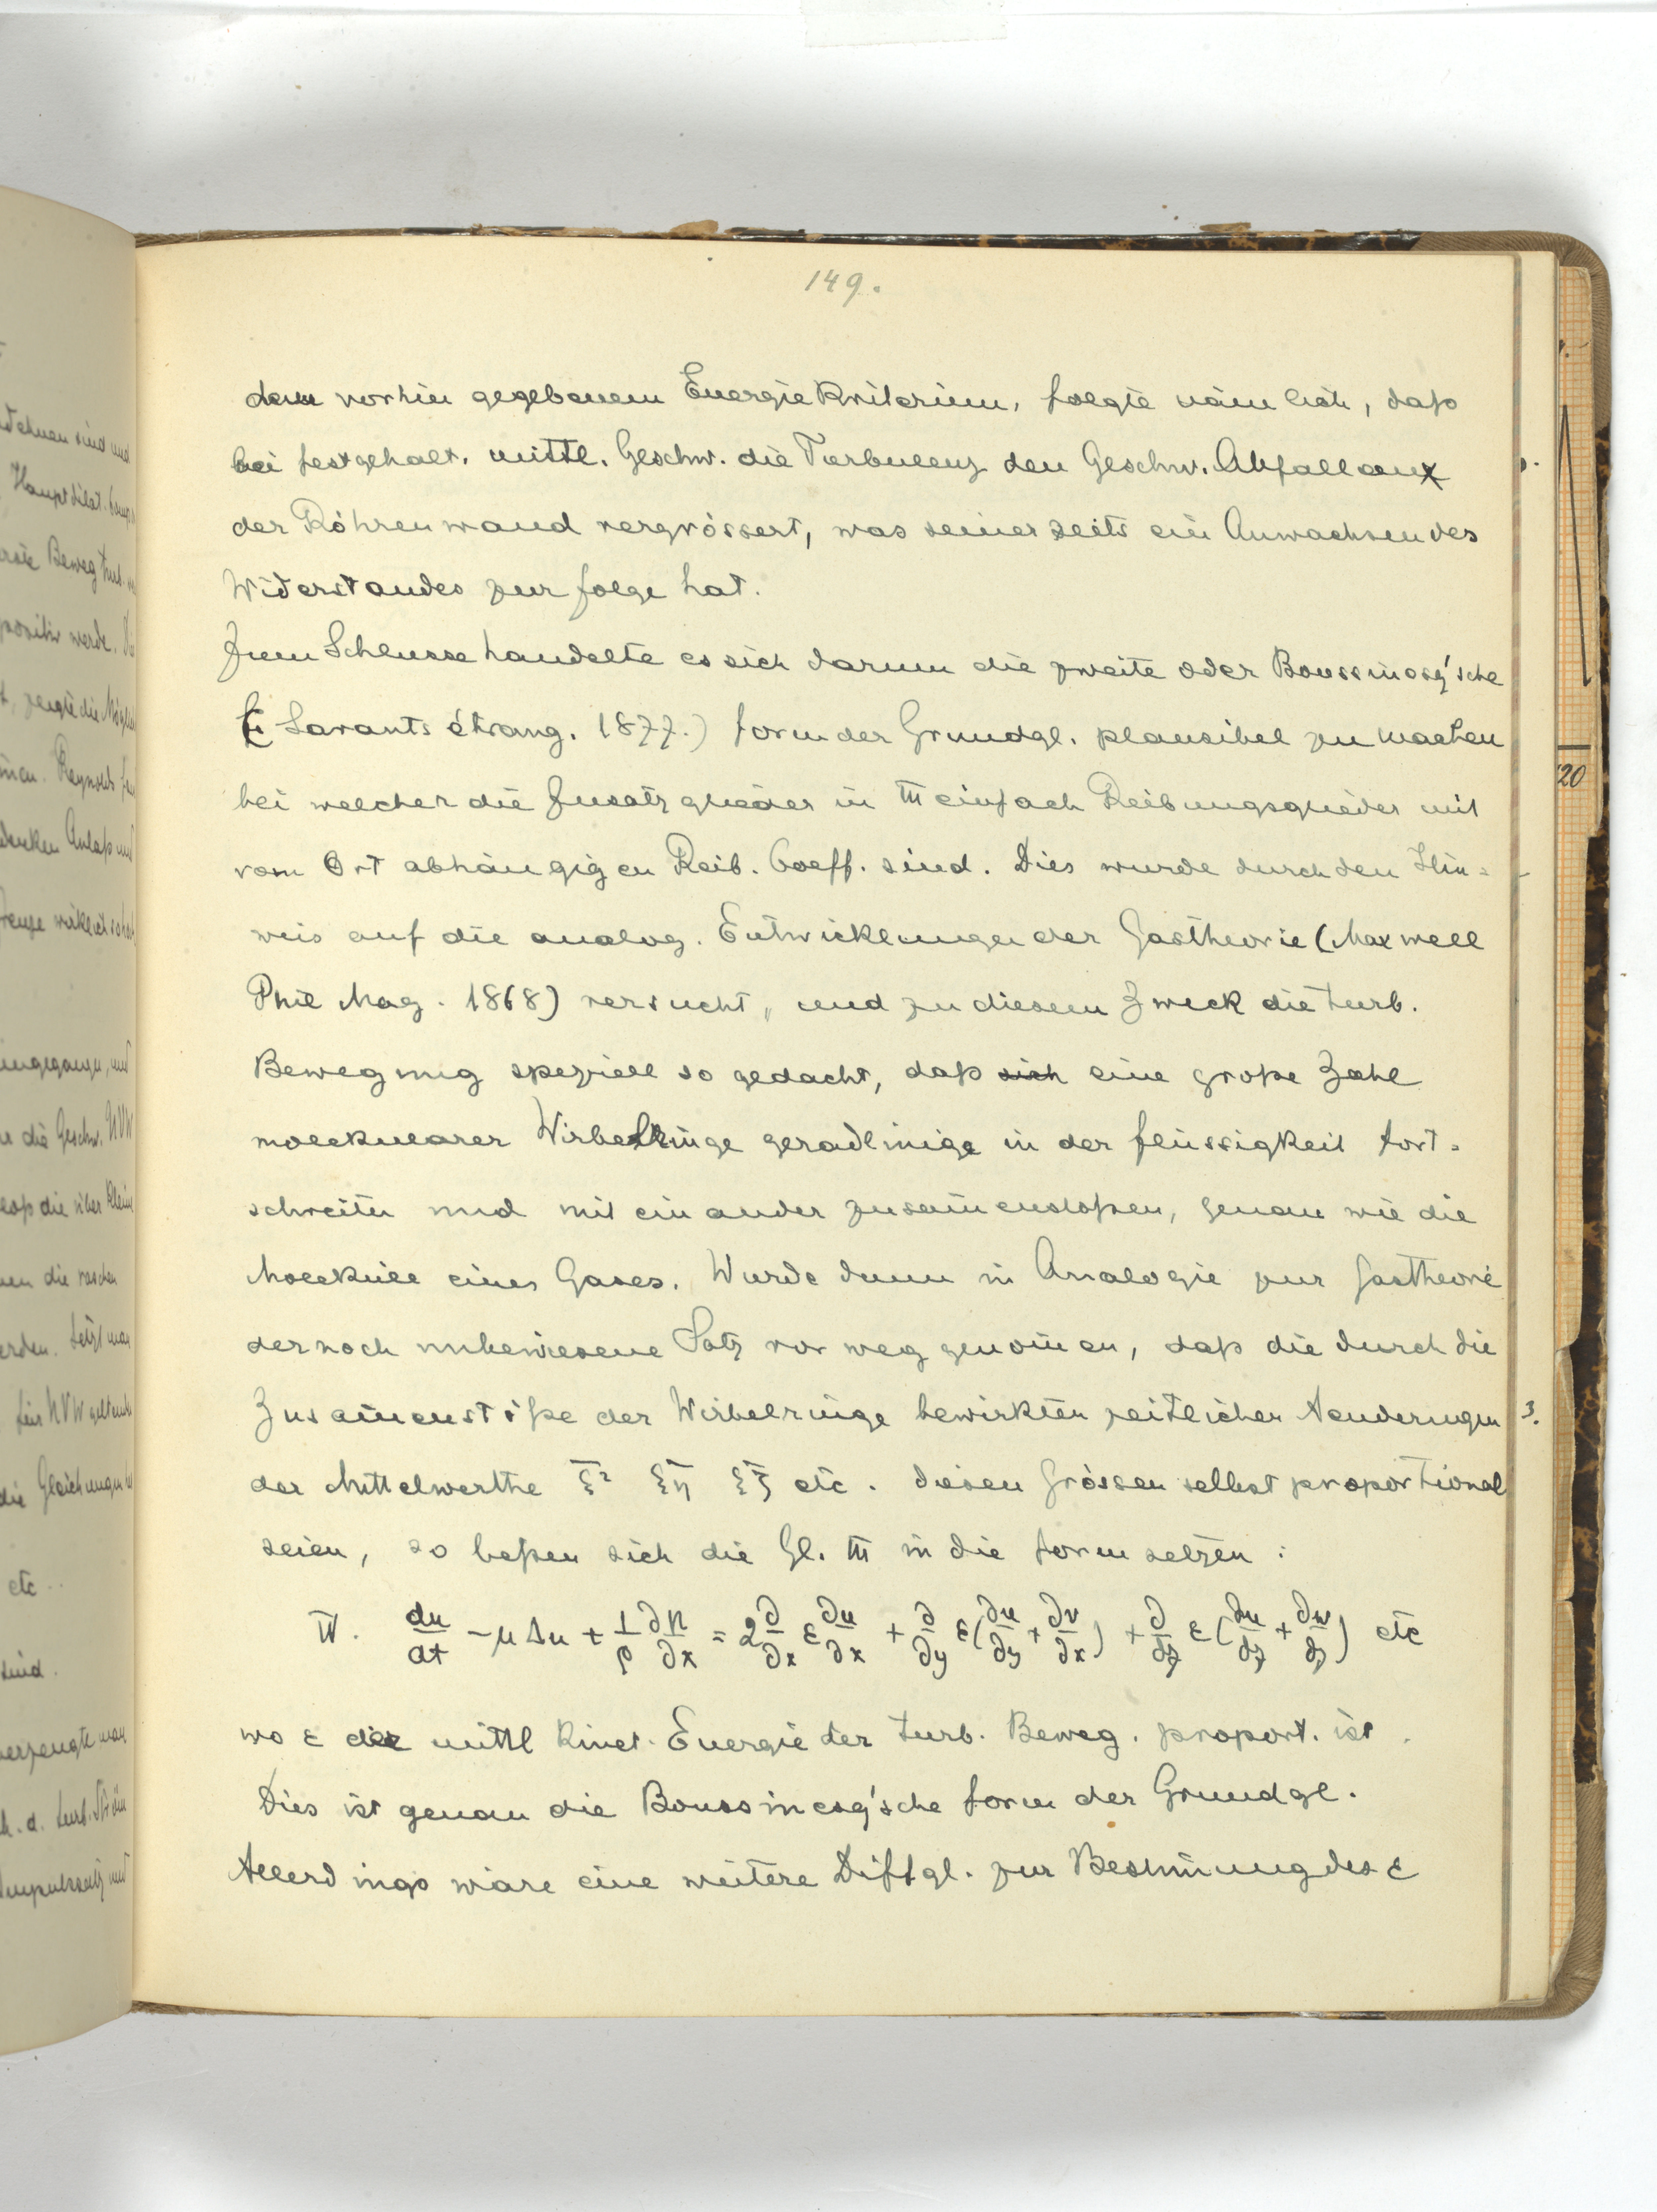 149.
dem vorhin gegebenem Energiekriterium, folgte nämlich, daß
bei festgehalt. mittl. Geschw. die Turbulenz den Geschw. Abfall an
der Röhrenwand vergrössert, was seinerseits ein Anwachsen des
Widerstandes zur folge hat.
Zum Schlusse handelte es sich darum die zweite oder Boussinesq'sche
( Savants étrang. 1877.) form der Grundgl. plausibel zu machen
bei welcher die Zusatzglieder in III einfach Reibungsglieder mit
vom Ort abhängigen Reib. Coeff. sind. Dies wurde durch den Hin=
weis auf die analog. Entwicklungen der Gastheorie (Maxwell
Phil Mag. 1868) versucht, und zu diesem Zweck die turb.
Bewegung speziell so gedacht, daß sich eine große Zahl
molekularer Wirbelringe geradlinige in der flüssigkeit fort=
schreiten und mit einander zusam̄enstoßen, genau wie die
Moleküle eines Gases. Wurde dann in Analogie zur Gastheorie
der noch unbewiesene Satz vorweg genom̄en, daß die durch die
Zusam̄enstöße der Wirbelringe bewirkten zeitlichen Aenderungen
der Mittelwerthe ξ̄² ξ̄η ξ̄ζ etc. diesen Grössen selbst proportional
seien, so ließen sich die Gl. III in die form setzen:
IV. du/dt − μ Δu + 1/ρ ∂p/∂x = 2 ∂/∂x ε ∂u/∂x + ∂/∂y ε(∂u/∂y + ∂v/∂x) + ∂/∂z ε(∂u/∂z + ∂w/∂x) etc
wo ε der mittl kinet. Energie der turb. Beweg. proport. ist.
Dies ist genau die Boussinesq'sche form der Grundgl.
Allerdings wäre eine weitere Diffgl. zur Bestim̄ung des ε
20
3.